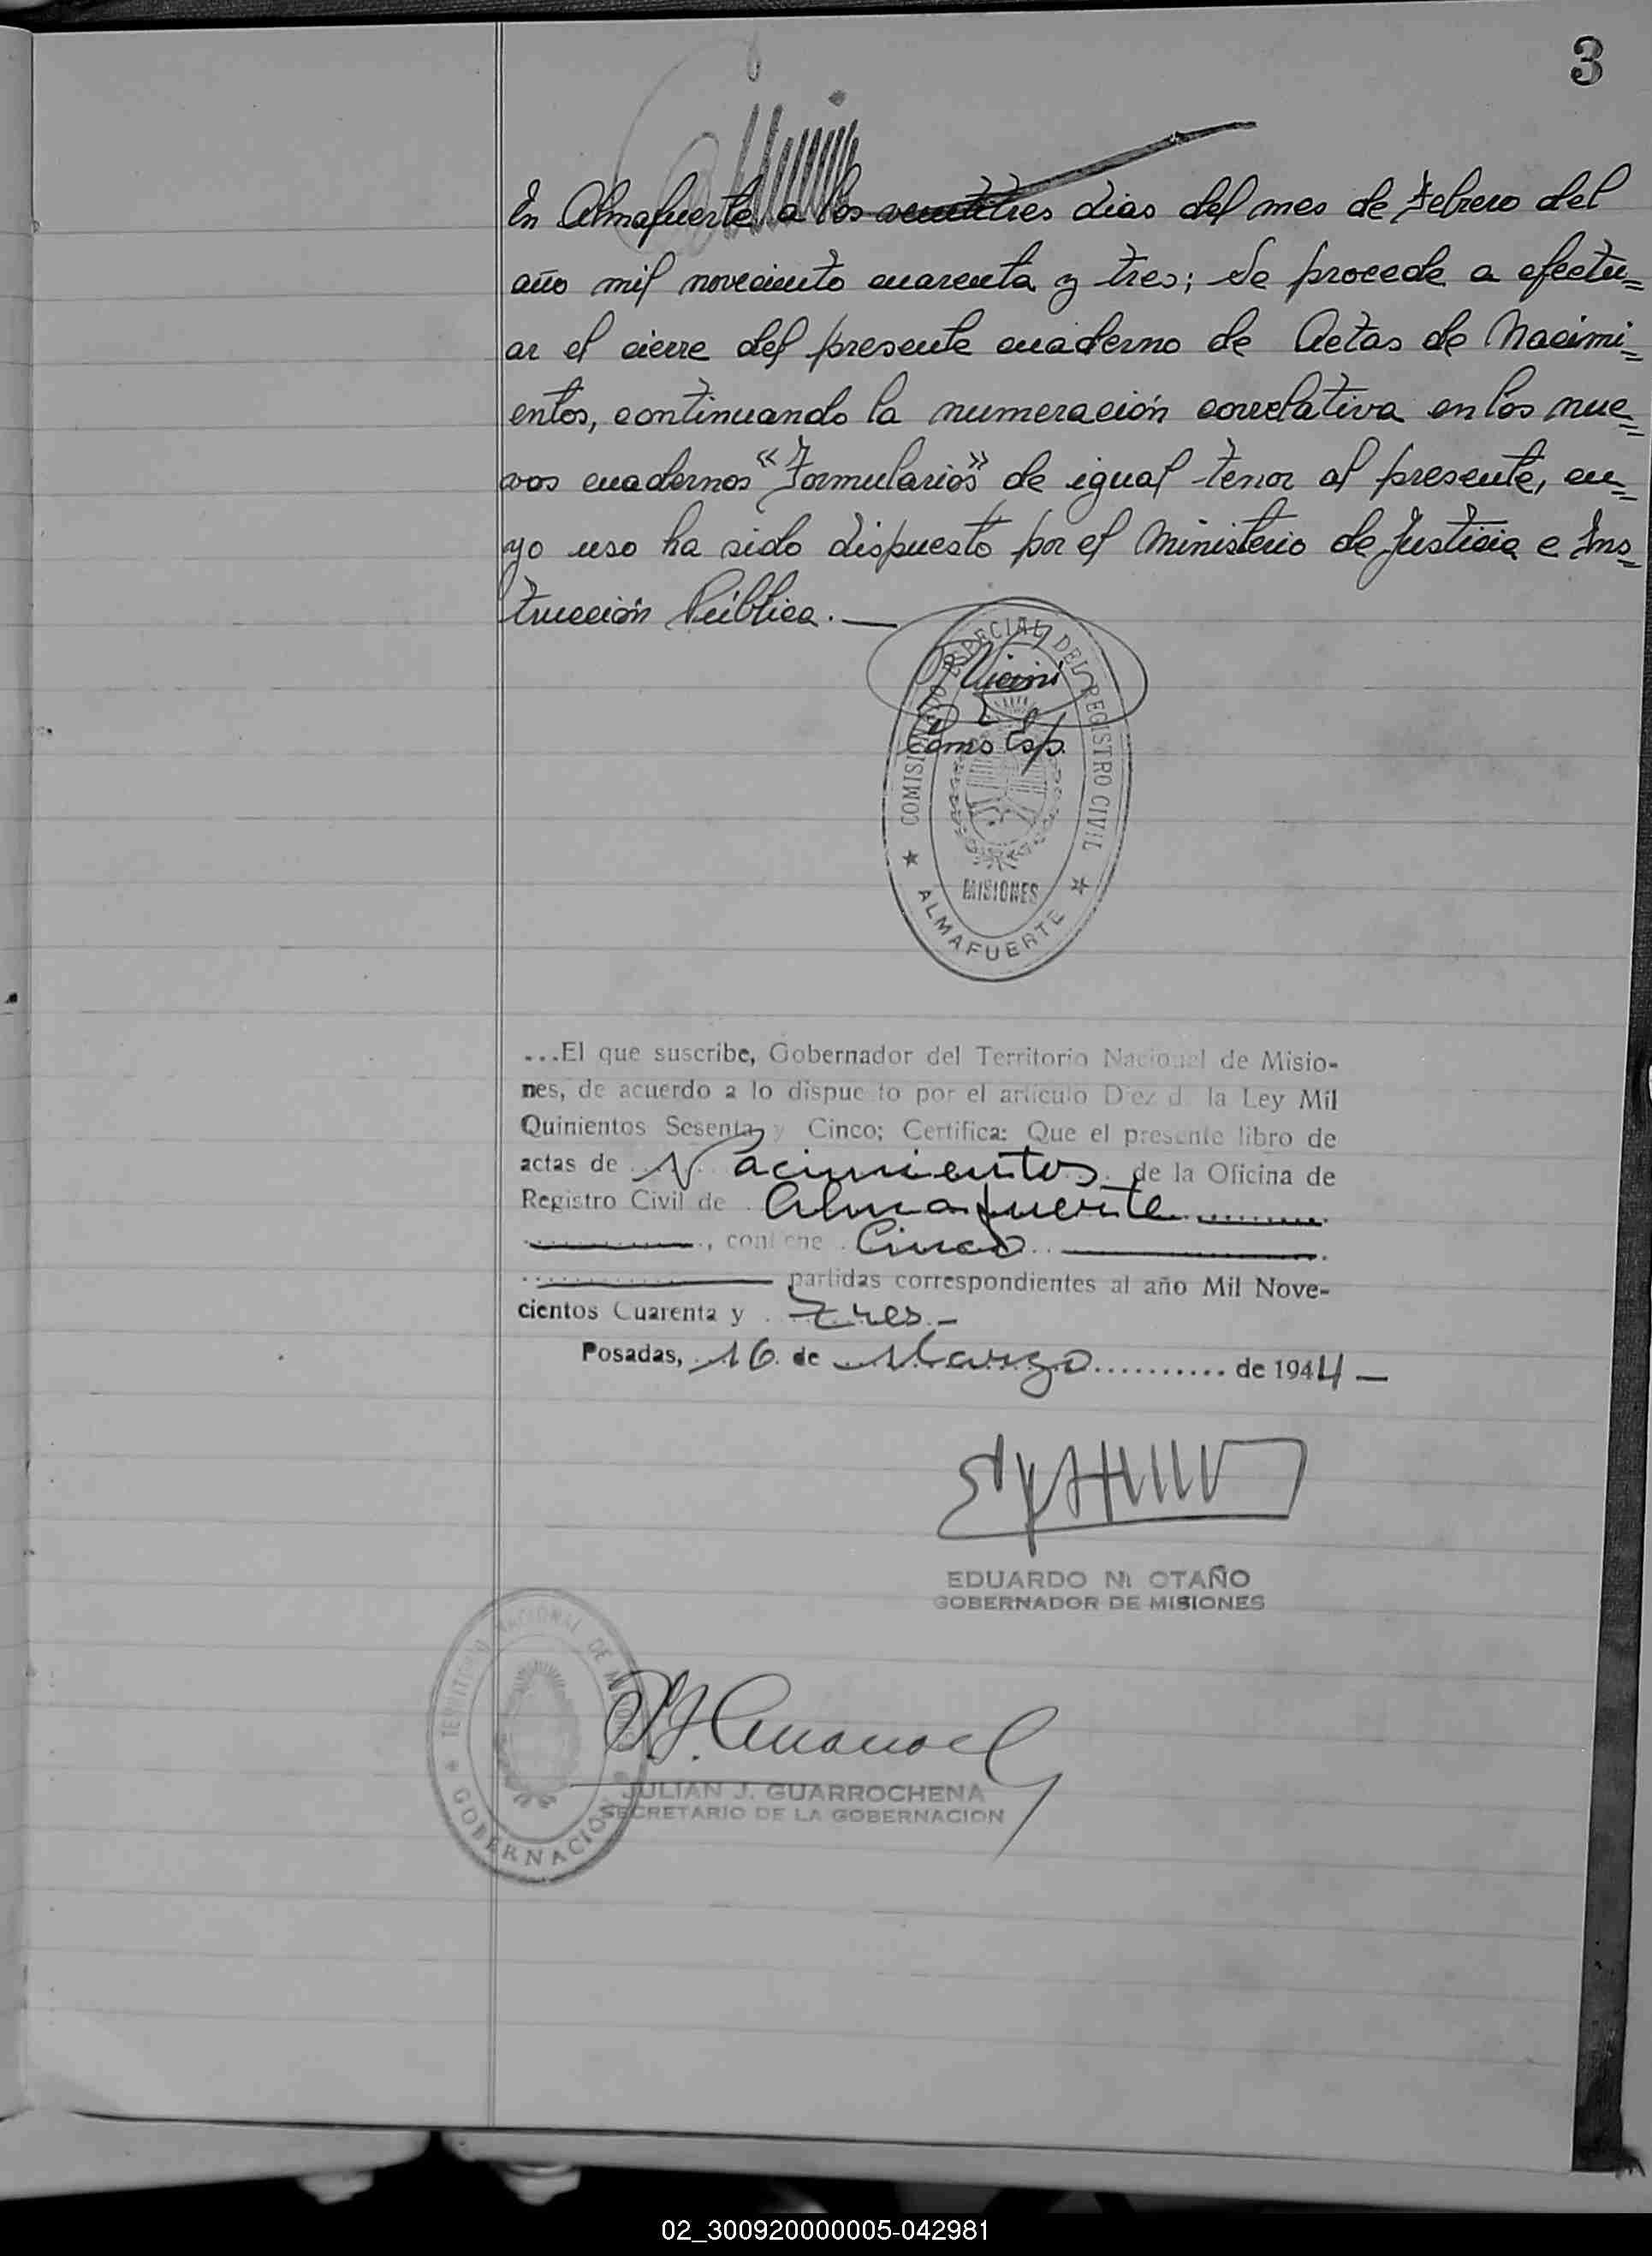 3
En Almafuerte, a los veintitres dias del mes de Febrero del
año mil noveciento cuarenta y tres; Se procede a efectu=
ar el cierre del presente cuaderno de Actas de Nacimi=
entos, continuando la numeración correlativa en los nue=
vos cuadernos "Formularios" de igual tenor al presente, cu=
yo uso ha sido dispuesto por el Ministerio de Justicia e Ins=
trucción Pública.—
Coms Esp.
COMISIONADO ESPECIAL DEL REGISTRO CIVIL
MISIONES
★ ALMAFUERTE ★
...El que suscribe, Gobernador del Territorio Nacional de Misio-
nes, de acuerdo a lo dispue to por el artículo Diez d la Ley Mil
Quinientos Sesenta y Cinco; Certifica: Que el presente libro de
actas de Nacimientos de la Oficina de
Registro Civil de Almafuerte
, contiene Cinco
partidas correspondientes al año Mil Nove-
cientos Cuarenta y tres.-
Posadas, 16 de Marzo de 1944 —
EDUARDO N. OTAÑO
GOBERNADOR DE MISIONES
TERRITORIO NACIONAL DE MISIONES
★ GOBERNACIÓN
JULIAN J. GUARROCHENA
SECRETARIO DE LA GOBERNACION
02_300920000005-042981